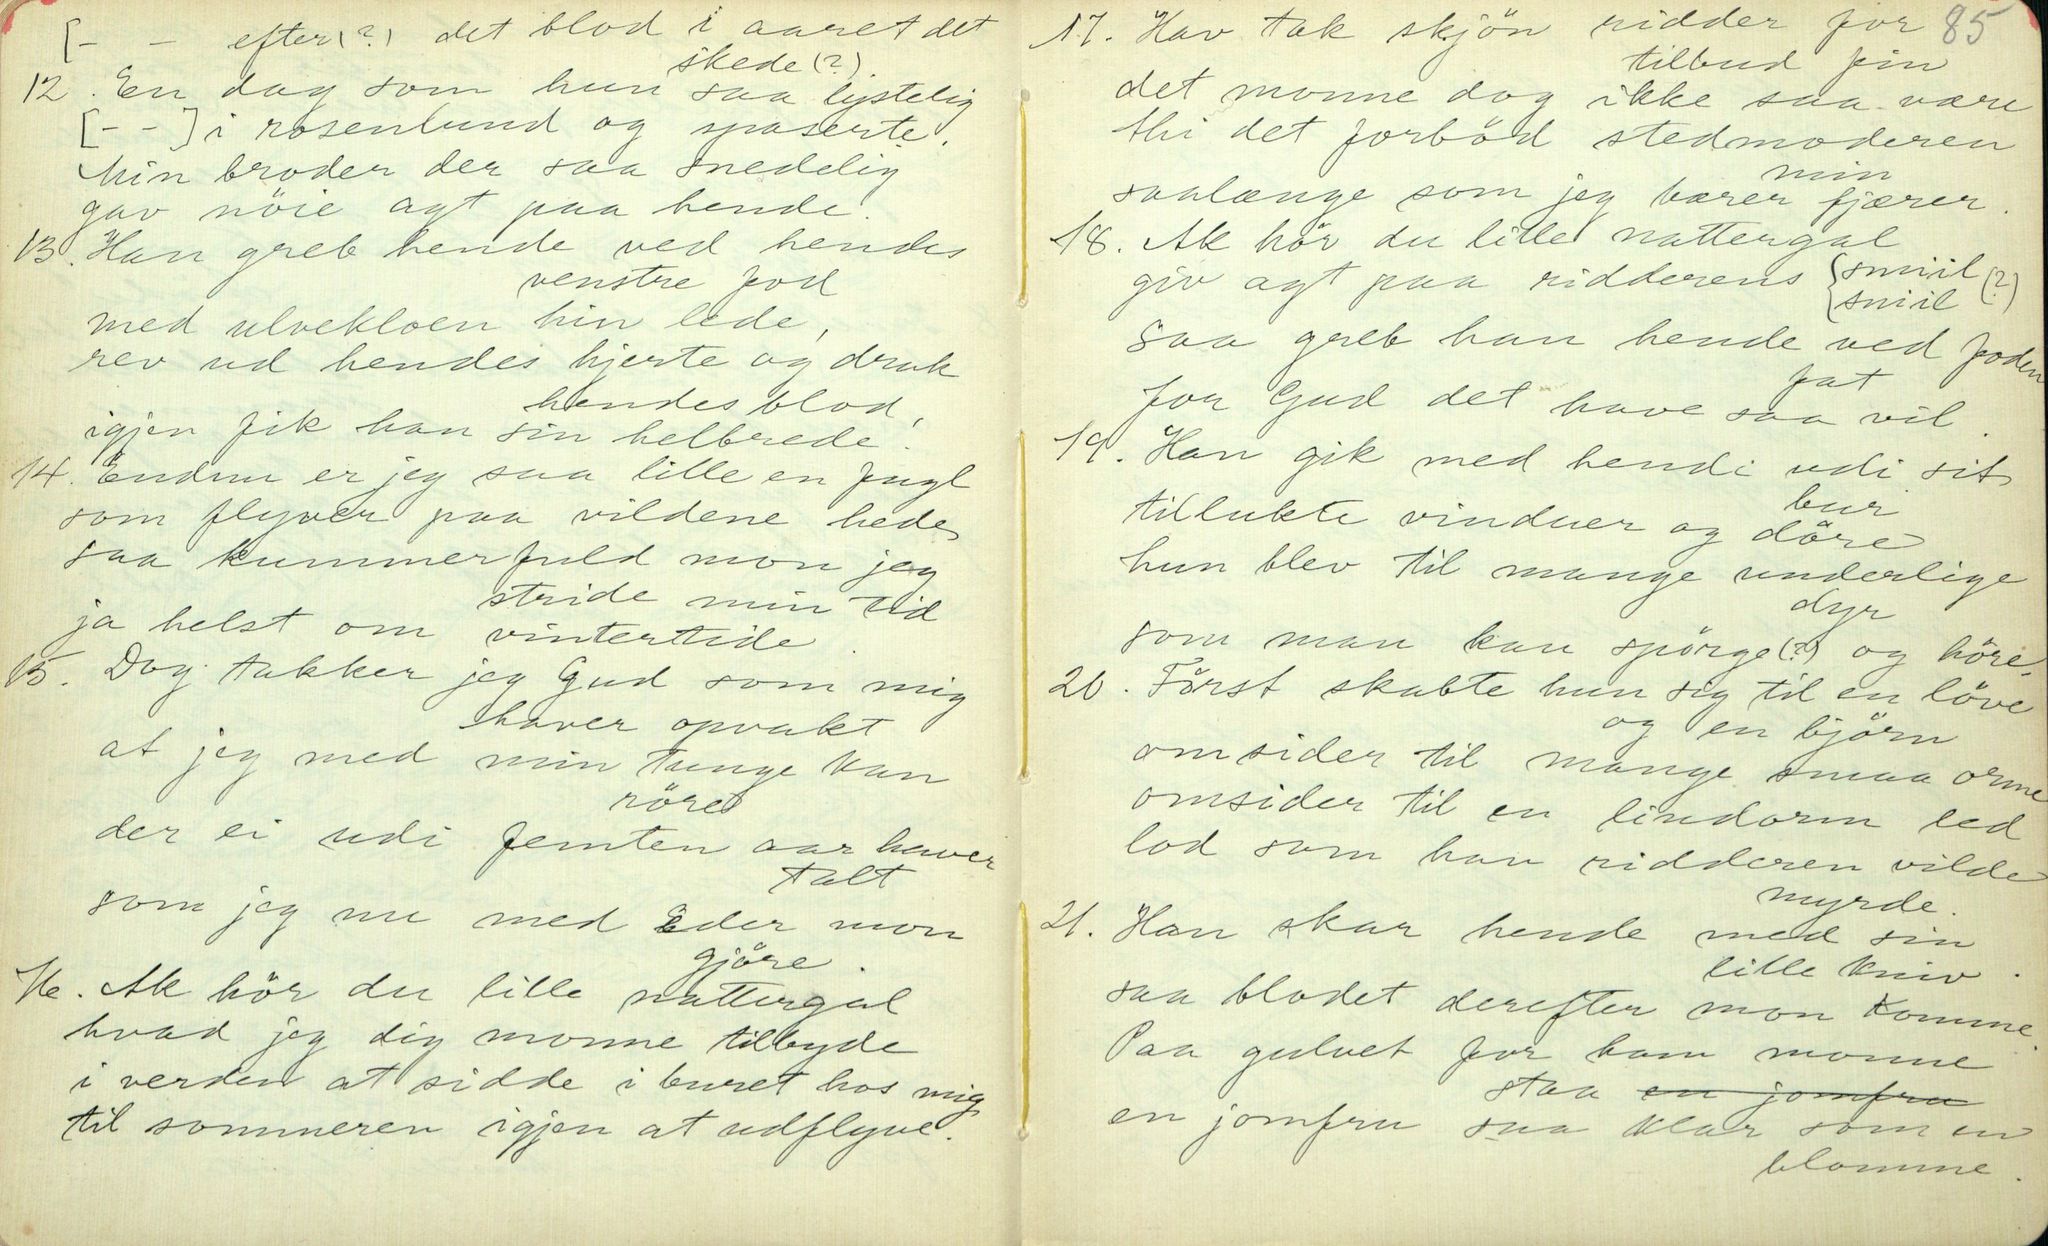 [- - efter(?) det blod i aaret det
skede(?).
12. En dag som hun saa lystelig
[- -] i rosenlund og spaserte,
min broder der saa snedelig
gav nöie agt paa hende.
13. Han greb hende ved hendes
venstre fod
med ulvekloen hin lede,
rev ud hendes hjerte og druk
hendes blod,
igjen fik han sin helbrede!
14. Endnu er jeg saa lille en fugl
som flyver paa vildene hede
saa kummerfuld mon jeg
stride min tid
ja helst om vintertide.
15. Dog takker jeg Gud som mig
haver opvakt
at jeg med min tunge kan
röre
der ei udi femten aar haver
talt
som jeg nu med Eder mon
gjöre.
16. Ak hör du lille nattergal
hvad jeg dig monne tilbyde
i verden at sidde i buret hos mig
til sommeren igjen at udflyve.
85
17. Hav tak skjön ridder for
tilbud fin
det monne dog ikke saa være
thi det forböd stedmoderen
min
saalænge som jeg bærer fjærer.
18. Ak hör du lille nattergal
giv agt paa ridderens {smiil (?)
{sniil
saa greb han hende ved foden
fat
for Gud det have saa vil.
19. Han gik med hende udi sit
bur
tillukte vinduer og döre
hun blev til mange underlige
dyr
som man kan spörge(?) og höre,
20. Först skabte hun sig til en löve
og en björn
omsider til mange smaa orme
omsider til en lindorm led
lod som han ridderen vilde
myrde.
21. Han skar hende med sin
lille kniv.
saa blodet derefter mon komme.
Paa gulvet for ham monne
staa en jomfru
en jomfru saa klar som en
blomme.